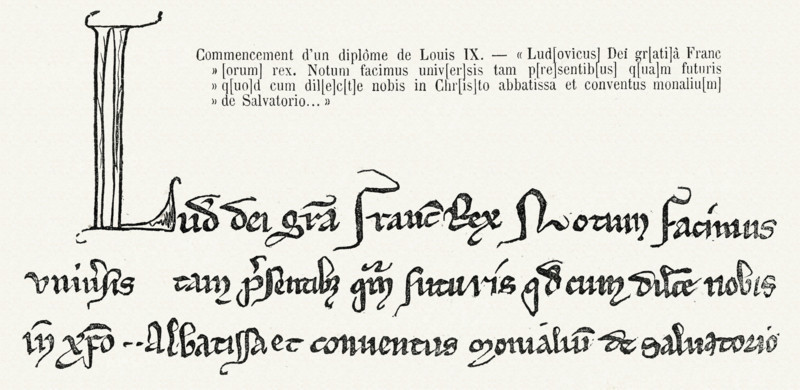 Commencement d'un diplôme de Louis IX. — « Lud[ovicus] Dei gr[ati]â Franc
» [orum] rex. Notum facimus univ[er]sis tam p[re]sentib[us] q[ua]m futuris
» q[uo]d cum dil[e]c[t]e nobis in Chr[is]to abbatissa et conventus monaliu[m]
» de Salvatorio... »
Lud dei gra Franc Rex Notum facimus
vniusis tam psentibz qm futuris qd cum dilce nobis
in xpo ·· Abbatissa et conuentus monialiu de Saluatorio